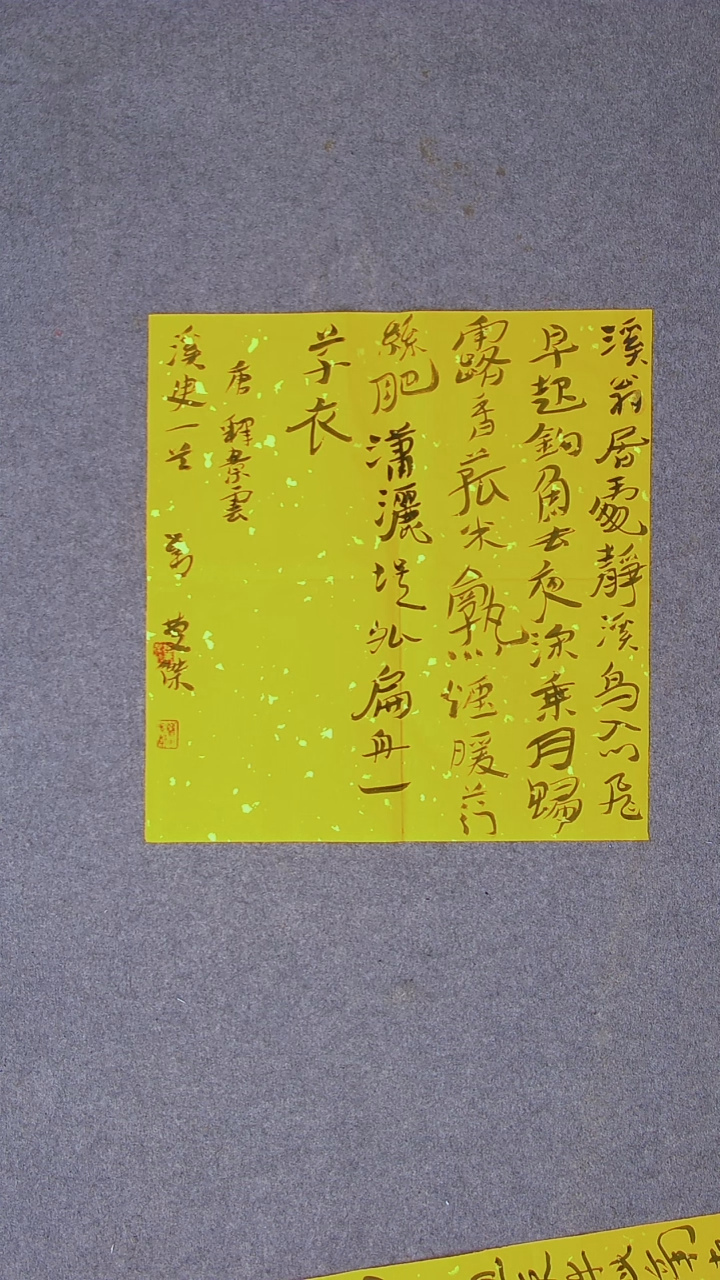 溪翁居處靜溪鳥入門飛
早起鈎魚去夜深乘月歸
露香菰米熟煙暖荇
絲肥瀟灑外扁舟一
草衣
唐 釋景雲
溪叟一首 傑